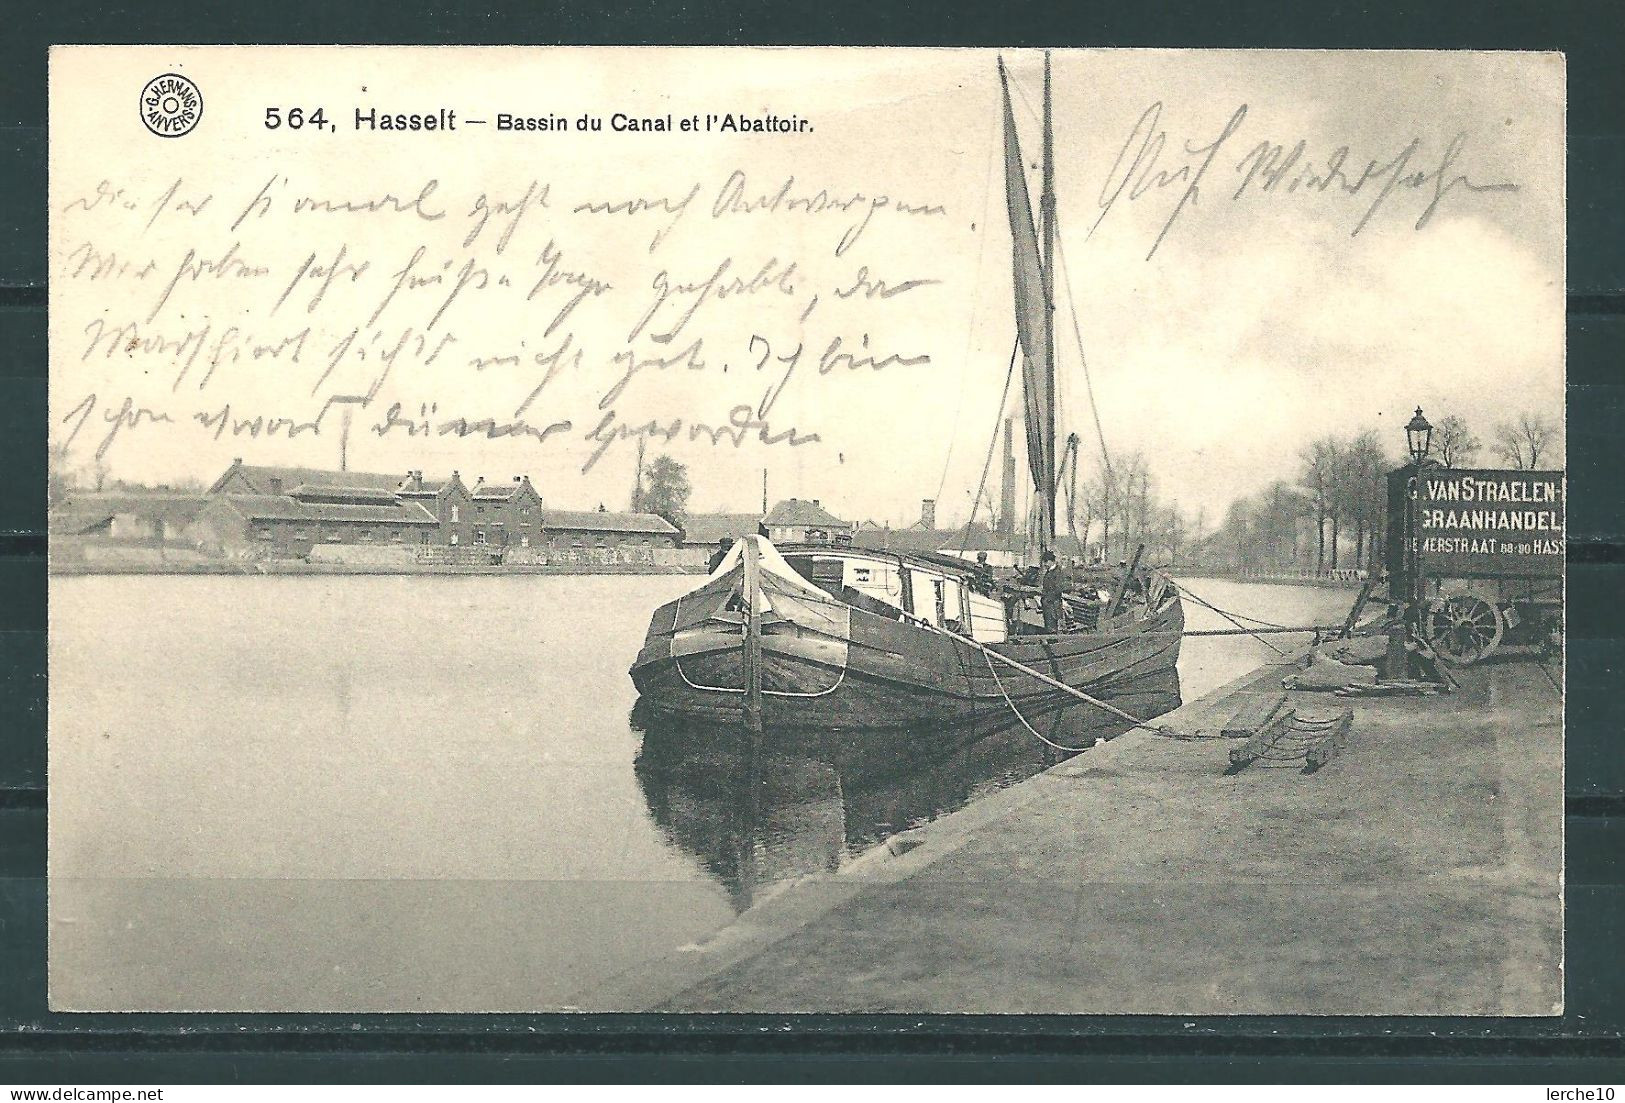 G. HERMANS. ANVERS
564, Hasselt — Bassin du Canal et l'Abattoir.
Auf Wiedersehn
dieser Kanal geht nach Antwerpen.
Wir haben sehr heiße Tage gehabt, da
Marschiert sich's nicht gut. Ich bin
schon etwas dünner geworden.
G. VAN STRAELEN-
GRAANHANDEL
MERSTRAAT 88-90 HASS
lerche10